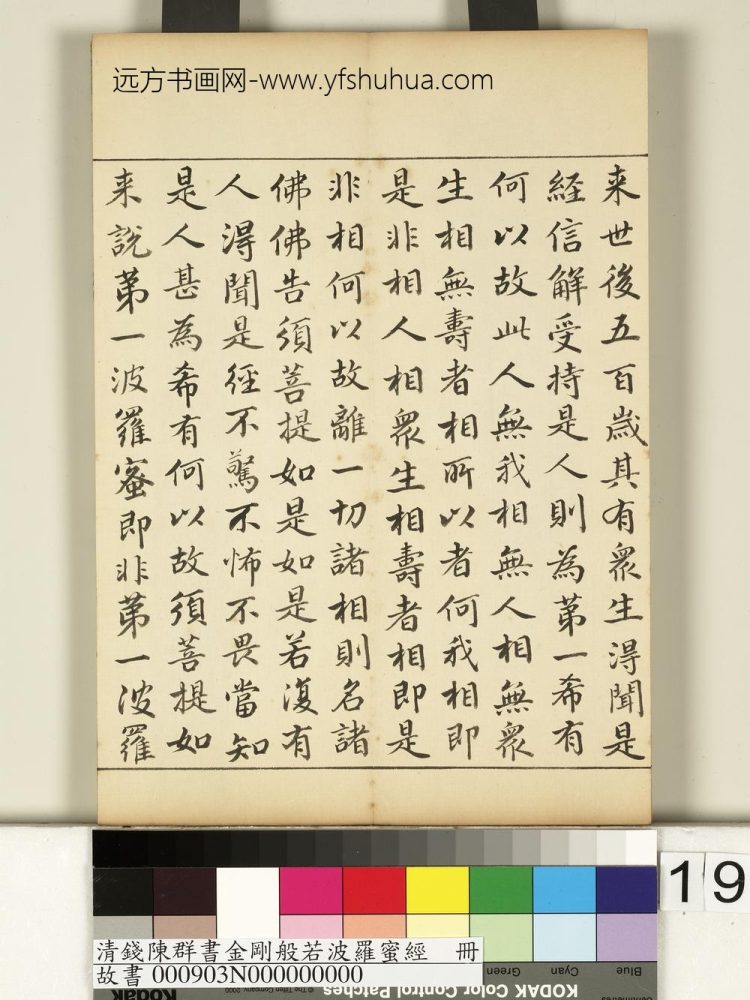 远方书画网-www.yfshuhua.com
来世後五百歲其有眾生得聞是
経信解受持是人則為第一希有
何以故此人無我相無人相無眾
生相無壽者相所以者何我相即
是非相人相眾生相壽者相即是
非相何以故離一切諸相則名諸
佛佛告須菩提如是如是若復有
人得聞是徑不驚不怖不畏當知
是人甚為希有何以故須菩提如
来說第一波羅蜜即非第一波羅
19
清錢陳群書金剛般若波羅蜜經 冊
故書 000903N000000000
Green Cyan Blue
KODAK Color Control Patches